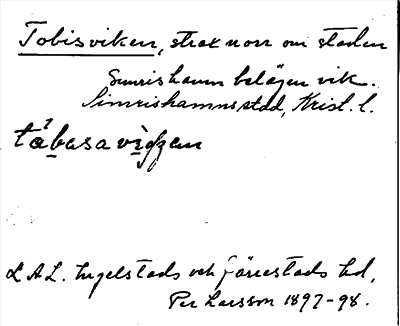 Tobisviken, strax norr om staden
Simrishamn belägen vik.
Simrishamns stad, Krist. l.
tåbasavigen
L.A.L. Ingelstads och Järrestads hd,
Per Larsson 1897-98.